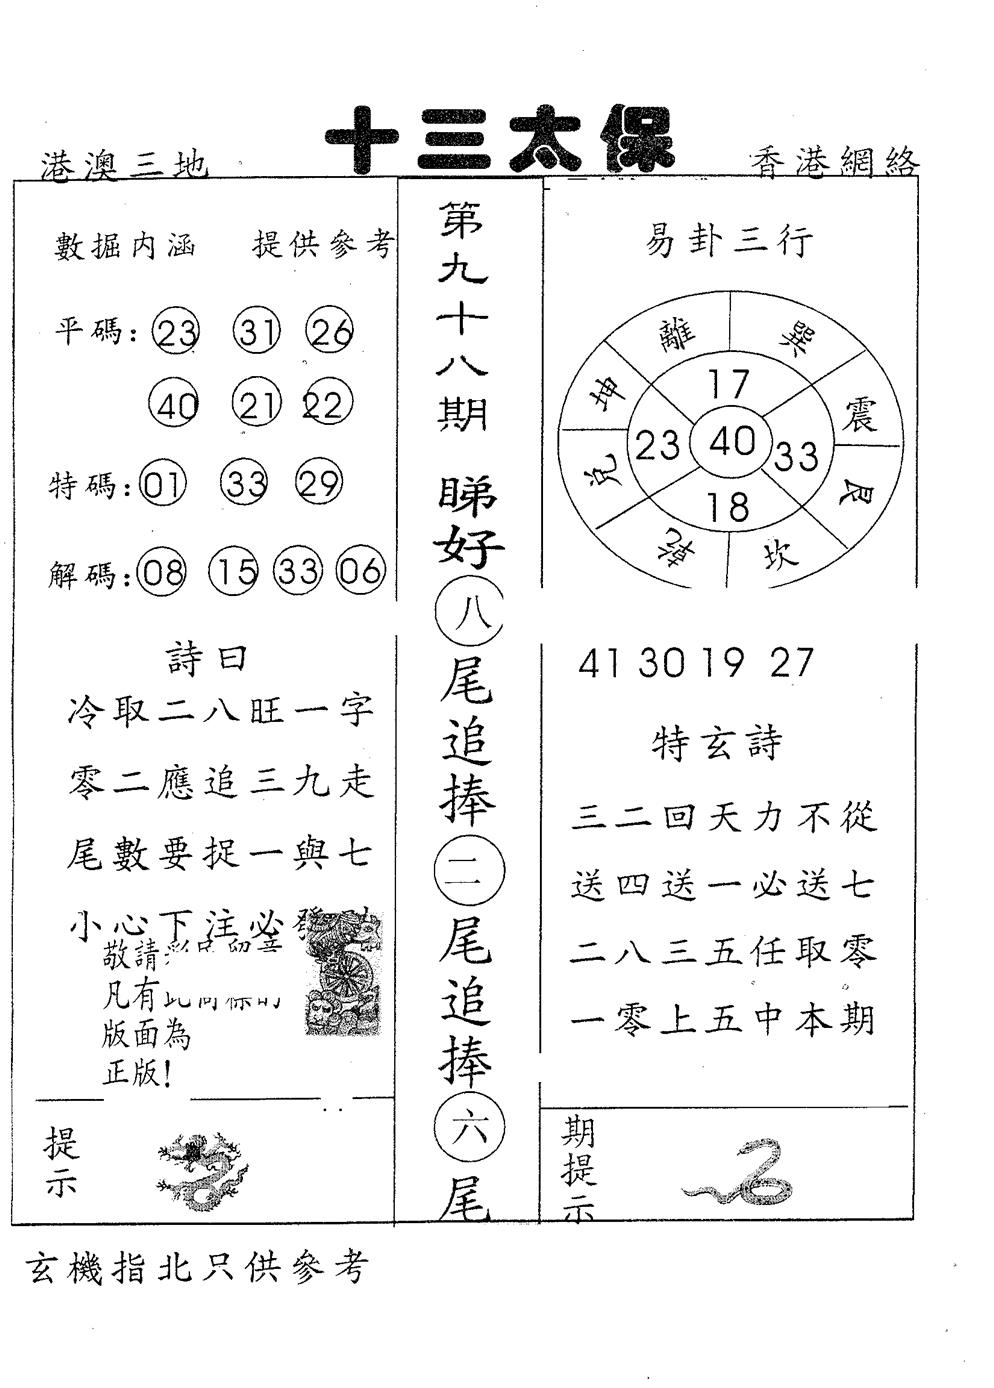 十三太保
港澳三地
香港網絡
數掘内涵 提供參考
平碼: 23 31 26
40 21 22
特碼: 01 33 29
解碼: 08 15 33 06
詩曰
冷取二八旺一字
零二應追三九走
尾數要捉一與七
小心下注必發
敬請
凡有
版面為
正版!
提示
第九十八期
睇好八尾追捧二尾追捧六尾
易卦三行
離 巽 震 艮 坎 乾 兑 坤
17
23 40 33
18
41 30 19 27
特玄詩
三二回天力不從
送四送一必送七
二八三五任取零
一零上五中本期
期提示
玄機指北只供參考